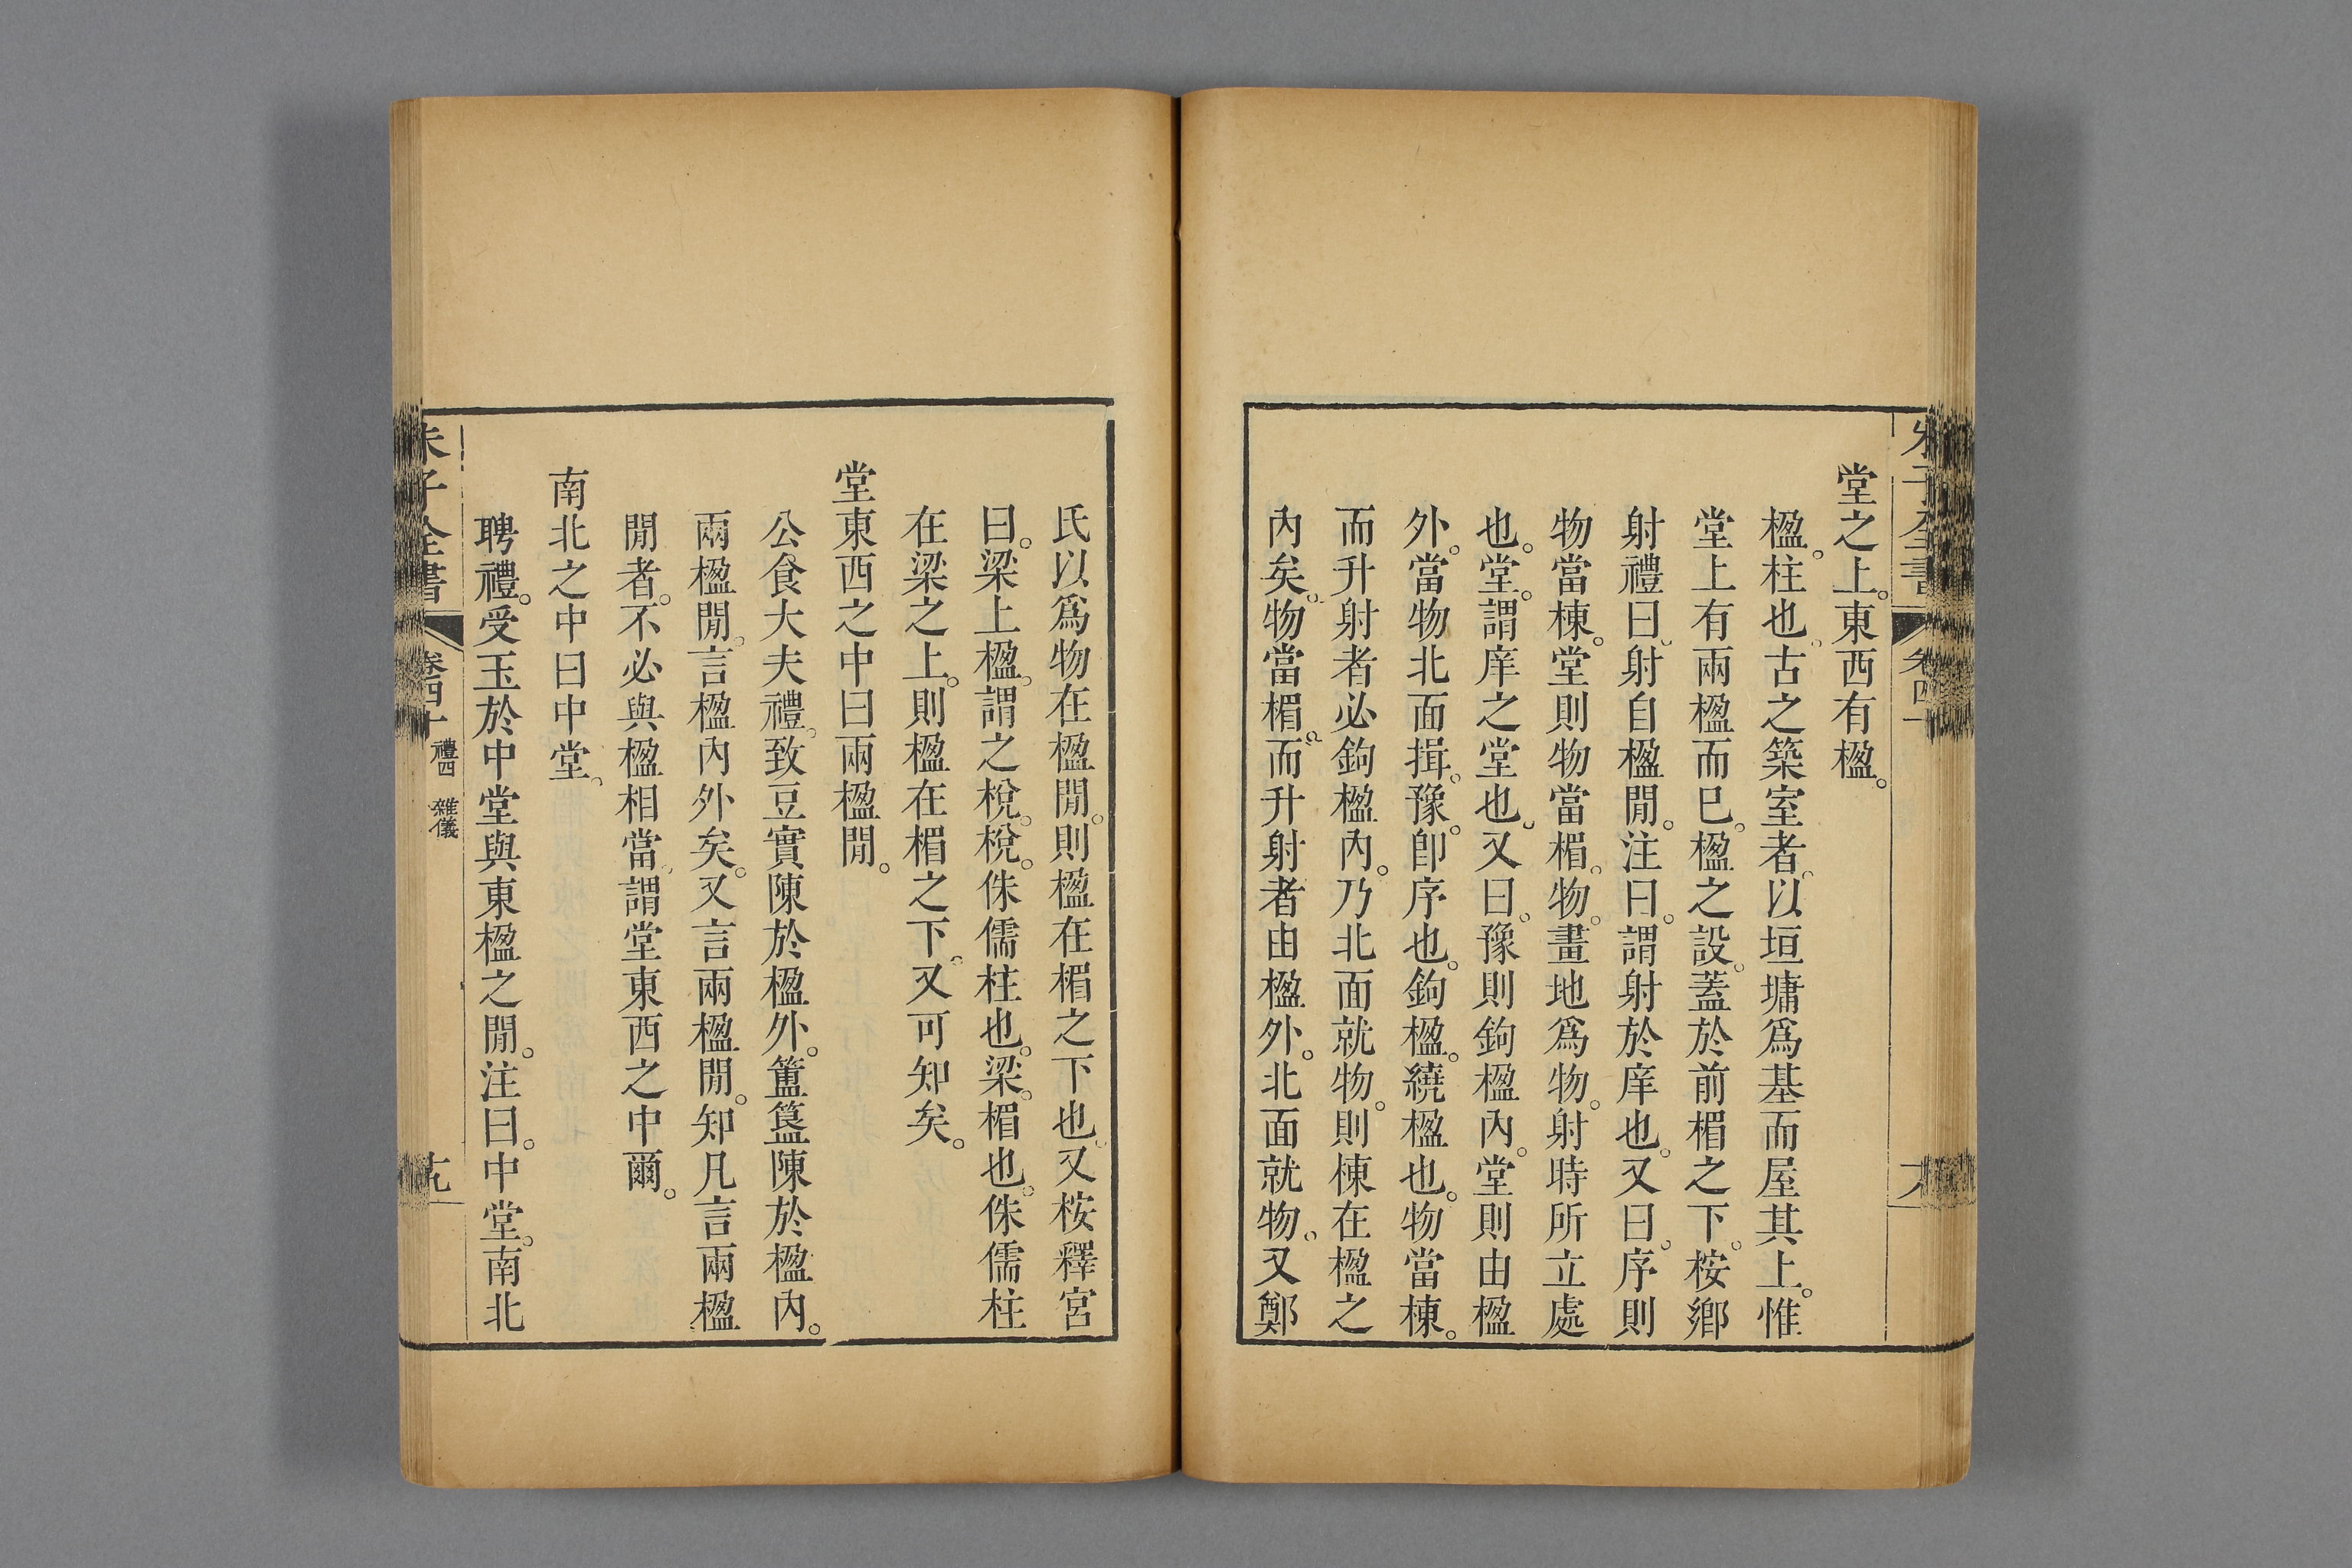 堂之上。東西有楹。
楹。柱也。古之築室者。以垣墉爲基而屋其上。惟
堂上有兩楹而已。楹之設。蓋於前楣之下。桉鄉
射禮曰。射自楹閒。注曰。謂射於庠也。又曰。序則
物當棟。堂則物當楣。物。畫地爲物。射時所立處
也。堂。謂庠之堂也。又曰。豫則鉤楹內。堂則由楹
外。當物北面揖。豫。卽序也。鉤楹。繞楹也。物當棟。
而升射者必鉤楹內。乃北面就物。則棟在楹之
內矣。物當楣。而升射者由楹外。北面就物。又鄭
氏以爲物在楹閒。則楹在楣之下也。又桉釋宮
曰。梁上楹。謂之梲。梲。侏儒柱也。梁。楣也。侏儒柱
在梁之上。則楹在楣之下。又可知矣。
堂東西之中曰兩楹閒。
公食大夫禮。致豆實陳於楹外。簠簋陳於楹內。
兩楹閒。言楹內外矣。又言兩楹閒。知凡言兩楹
閒者。不必與楹相當。謂堂東西之中爾。
南北之中曰中堂。
聘禮。受玉於中堂與東楹之閒。注曰。中堂。南北
朱子全書
卷四十
禮四 雜儀
十九